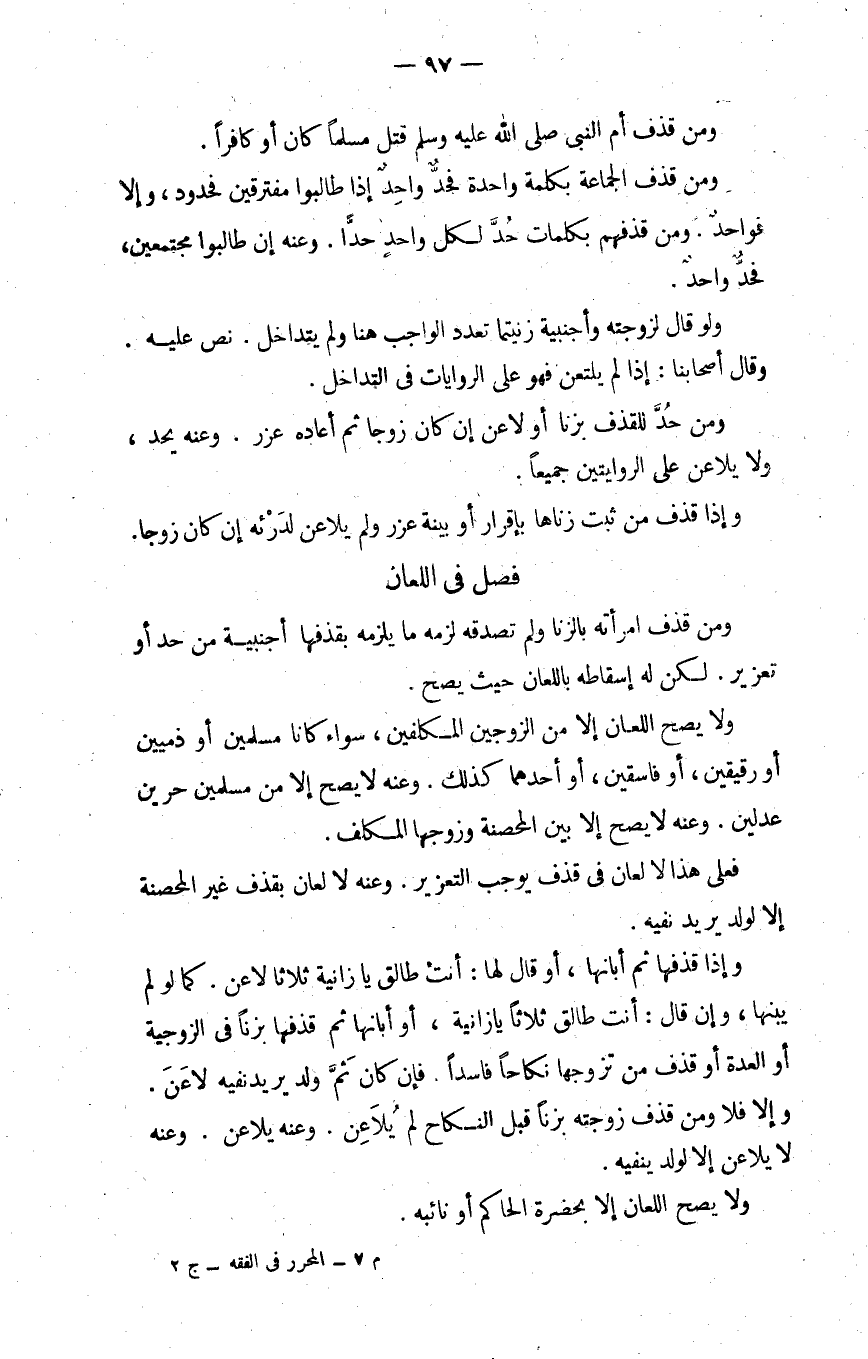 — ٩٧ —
ومن قذف أم النبى صلى الله عليه وسلم قتل مسلماً كان أو كافراً .
ومن قذف الجماعة بكلمة واحدة فحدٌّ واحِدٌ إذا طالبوا مفترقين فحدود ، وإلا
فواحدٌ . ومن قذفهم بكلمات حُدَّ لكل واحدٍ حدًّا . وعنه إن طالبوا مجتمعين،
فحدٌّ واحدٌ .
ولو قال لزوجته وأجنبية زنيتما تعدد الواجب هنا ولم يتداخل . نص عليه .
وقال أصحابنا : إذا لم يلتعن فهو على الروايات فى التداخل .
ومن حُدَّ للقذف بزنا أو لاعن إن كان زوجا ثم أعاده عزر . وعنه يحد ،
ولا يلاعن على الروايتين جميعاً .
وإذا قذف من ثبت زناها بإقرار أو بينة عزر ولم يلاعن لدَرْئه إن كان زوجا.
فصل فى اللعان
ومن قذف امرأته بالزنا ولم تصدقه لزمه ما يلزمه بقذفها أجنبية من حد أو
تعزير . لكن له إسقاطه باللعان حيث يصح .
ولا يصح اللعان إلا من الزوجين المكلفين ، سواء كانا مسلمين أو ذميين
أو رقيقين ، أو فاسقين ، أو أحدهما كذلك . وعنه لا يصح إلا من مسلمين حرين
عدلين . وعنه لا يصح إلا بين المحصنة وزوجها المكلف .
فعلى هذا لا لعان فى قذف يوجب التعزير . وعنه لا لعان بقذف غير المحصنة
إلا لولد يريد نفيه .
وإذا قذفها ثم أبانها ، أو قال لها : أنت طالق يا زانية ثلاثا لاعن . كما لو لم
يبنها ، وإن قال : أنت طالق ثلاثاً يازانية ، أو أبانها ثم قذفها بزناً فى الزوجية
أو العدة أو قذف من تزوجها نكاحاً فاسداً . فإن كان ثَمَّ ولد يريد نفيه لاعَنَ .
وإلا فلا ومن قذف زوجته بزناً قبل النكاح لم يُلاَعِن . وعنه يلاعن . وعنه
لا يلاعن إلا لولد ينفيه .
ولا يصح اللعان إلا بحضرة الحاكم أو نائبه .
م ٧ – المحرر فى الفقه – ج ٢